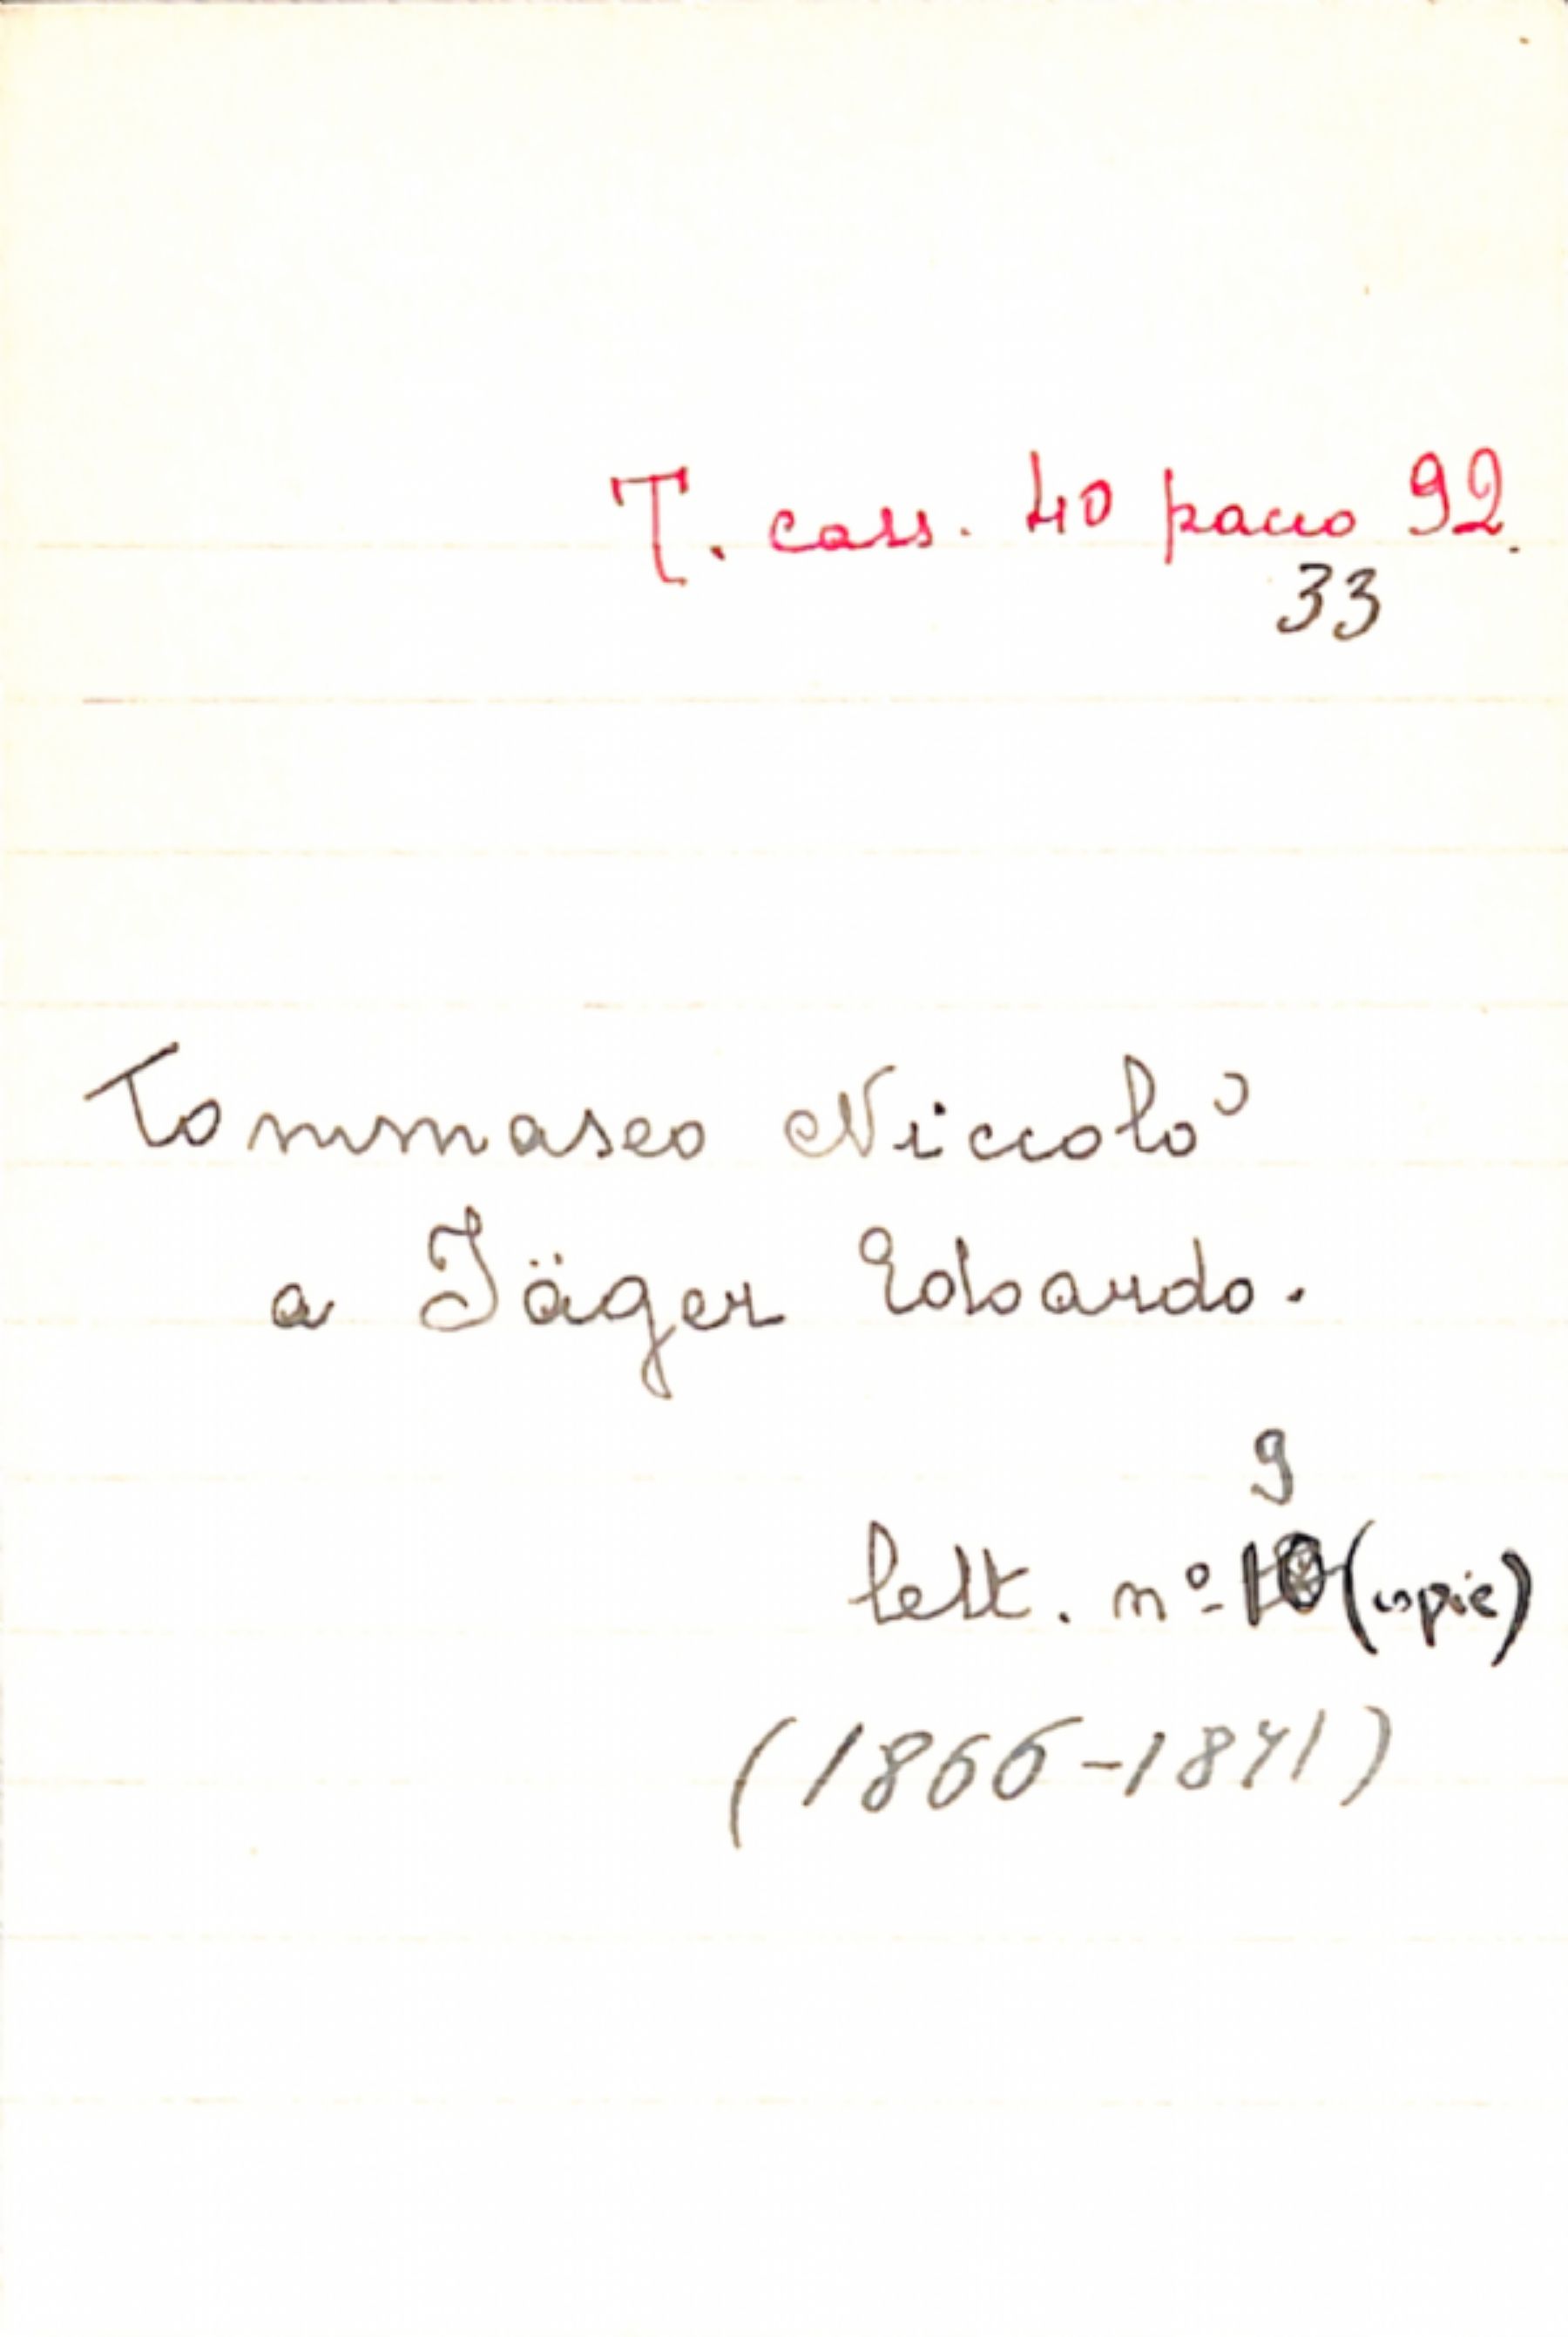 T. cass. 40 pacco 92.
33
Tommaseo Niccolò
a Jäger Edoardo.
9
lett. nº 10 (copie)
(1866-1871)